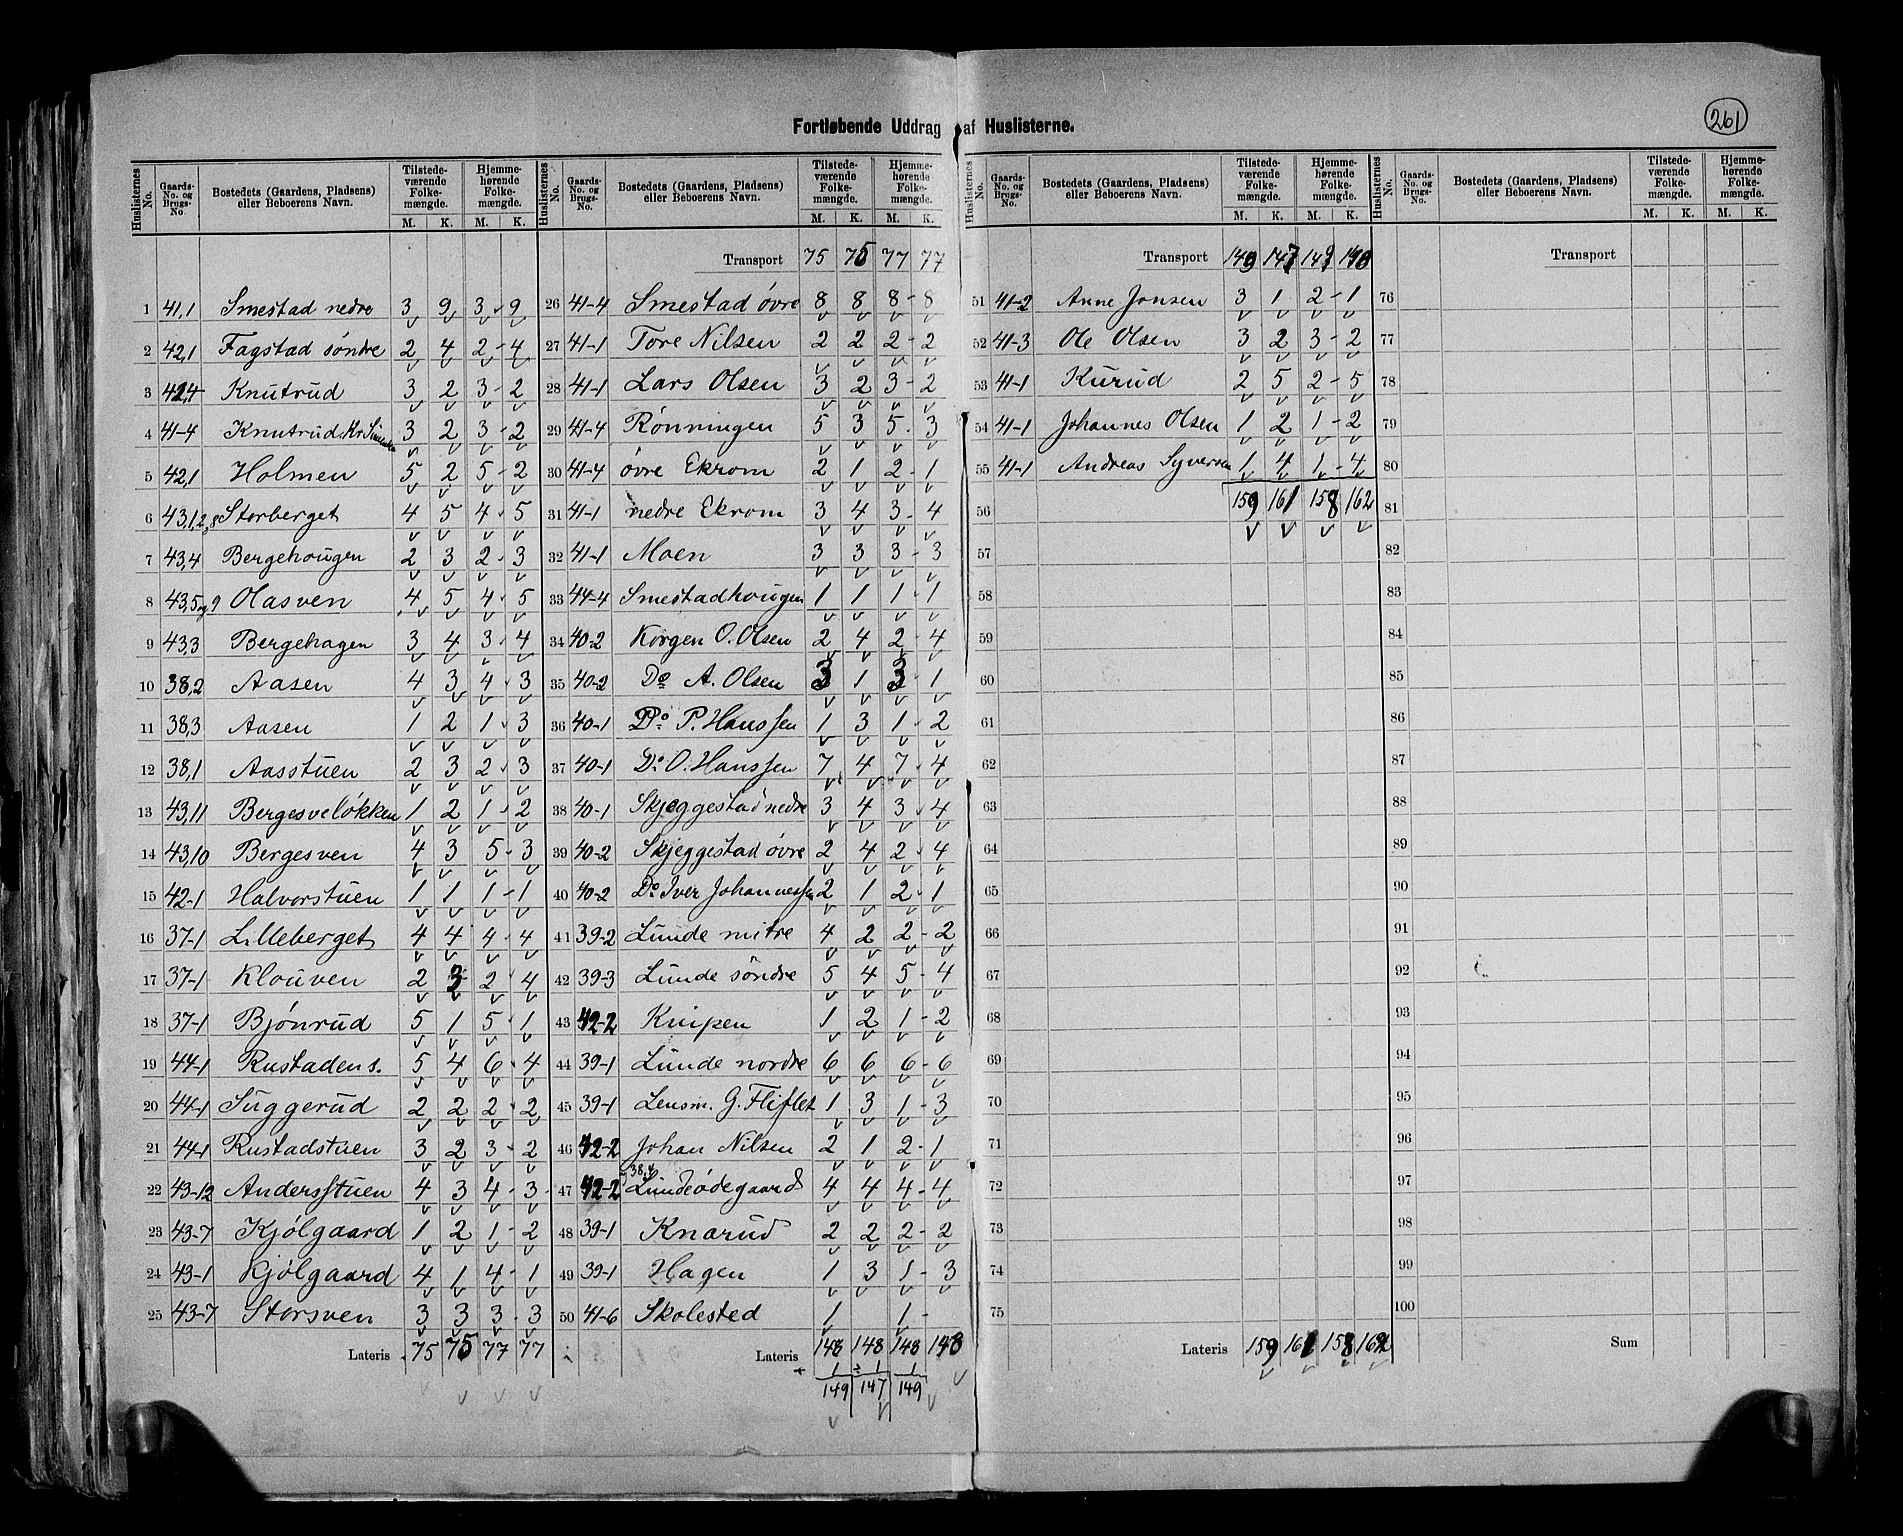 261
Fortløbende Uddrag af Huslisterne.
Huslisternes No. | Gaards-No. og Brugs-No. | Bostedets (Gaardens, Pladsens) eller Beboerens Navn. | Tilstedeværende Folkemængde. M. K. | Hjemmehørende Folkemængde. M. K.
1 41,1 Smestad nedre 3 9 3 9
2 42,1 Fagstad söndre 2 4 2 4
3 42,4 Knutrud 3 2 3 2
4 41-4 Knutrud, 3 2 3 2
5 42,1 Holmen 5 2 5 2
6 43,1,2,8 Storberget 4 5 4 5
7 43,4 Bergehougen 2 3 2 3
8 43,5 og 9 Olasven 4 5 4 5
9 43,3 Bergehagen 3 4 3 4
10 38,2 Aasen 4 3 4 3
11 38,3 Aasen 1 2 1 3
12 38,1 Aasstuen 2 3 2 3
13 43,11 Bergesveløkken 1 2 1 2
14 43,10 Bergesven 4 3 5 3
15 42-1 Halvorstuen 1 1 1 1
16 37-1 Lilleberget 4 4 4 4
17 37-1 Klouven 2 3 2 4
18 37-1 Bjönrud 5 1 5 1
19 44-1 Rustaden s. 5 4 6 4
20 44-1 Suggerud 2 2 2 2
21 44-1 Rustadstuen 3 2 3 2
22 43-12 Andersstuen 4 3 4 3
23 43-7 Kjölgaard 1 2 1 2
24 43-1 Kjölgaard 4 1 4 1
25 43-7 Storsven 3 3 3 3
Lateris 75 75 77 77
Huslisternes No. | Gaards-No. og Brugs-No. | Bostedets (Gaardens, Pladsens) eller Beboerens Navn. | Tilstedeværende Folkemængde. M. K. | Hjemmehørende Folkemængde. M. K.
Transport 75 75 77 77
26 41-4 Smestad övre 8 8 8 8
27 41-1 Tore Nilsen 2 2 2 2
28 41-1 Lars Olsen 3 2 3 2
29 41-4 Rönningen 5 3 5 3
30 41-4 övre Ekrom 2 1 2 1
31 41-1 nedre Ekrom 3 4 3 4
32 41-1 Moen 3 3 3 3
33 44-4 Smestadhougen 1 1 1 1
34 40-2 Korgen O. Olsen 2 4 2 4
35 40-2 Do A. Olsen 3 1 3 1
36 40-1 Do P. Hanssen 1 3 1 2
37 40-1 Do O. Hanssen 7 4 7 4
38 40-1 Skjeggestad nedre 3 4 3 4
39 40-2 Skjeggestad övre 2 4 2 4
40 40-2 Do Iver Johannessen 2 1 2 1
41 39-2 Lunde mitre 4 2 2 2
42 39-3 Lunde söndre 5 4 5 4
43 42-2 Knipen 1 2 1 2
44 39-1 Lunde nordre 6 6 6 6
45 39-1 Lensm. G. Fliflet 1 3 1 3
46 42-2 Johan Nilsen 2 1 2 1
47 42-2 38,4 Lundeödegaard 4 4 4 4
48 39-1 Knarud 2 2 2 2
49 39-1 Hagen 1 3 1 3
50 41-6 Skolested 1 1
Lateris 148 148 148 148
+ 1 ÷ 1 1
149 147 149
Huslisternes No. | Gaards-No. og Brugs-No. | Bostedets (Gaardens, Pladsens) eller Beboerens Navn. | Tilstedeværende Folkemængde. M. K. | Hjemmehørende Folkemængde. M. K.
Transport 149 147 149 148
51 41-2 Anne Jonsen 3 1 2 1
52 41-3 Ole Olsen 3 2 3 2
53 41-1 Kurud 2 5 2 5
54 41-1 Johannes Olsen 1 2 1 2
55 41-1 Andreas Syversen 1 4 1 4
56 159 161 158 162
57
58
59
60
61
62
63
64
65
66
67
68
69
70
71
72
73
74
75
Lateris 159 161 158 162
Huslisternes No. | Gaards-No. og Brugs-No. | Bostedets (Gaardens, Pladsens) eller Beboerens Navn. | Tilstedeværende Folkemængde. M. K. | Hjemmehørende Folkemængde. M. K.
Transport
76
77
78
79
80
81
82
83
84
85
86
87
88
89
90
91
92
93
94
95
96
97
98
99
100
Sum